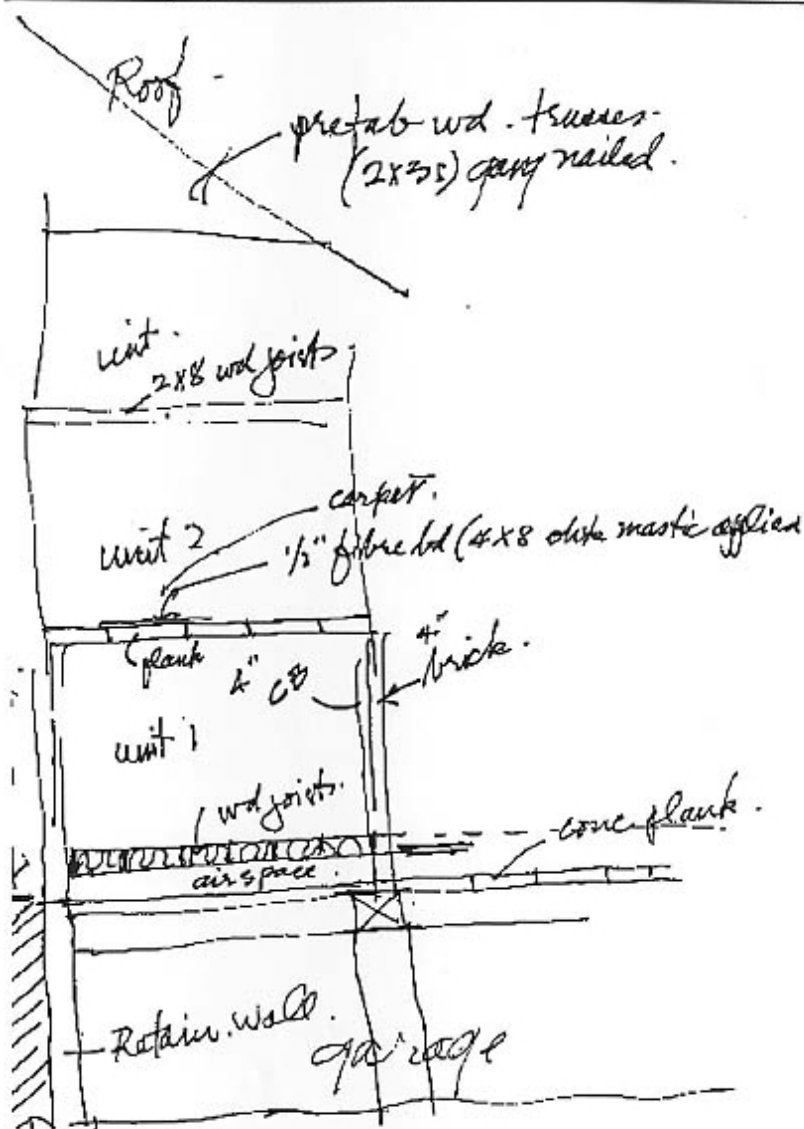 Roof -
prefab wd. trusses-
(2x3s) gang nailed.
unit.
2x8 wd joists
carpet.
unit 2
1/2" fibre bd (4x8 mastic applied
plank
4" CB
4" brick.
unit 1
wd joists.
conc plank.
air space.
Retain. wall.
garage